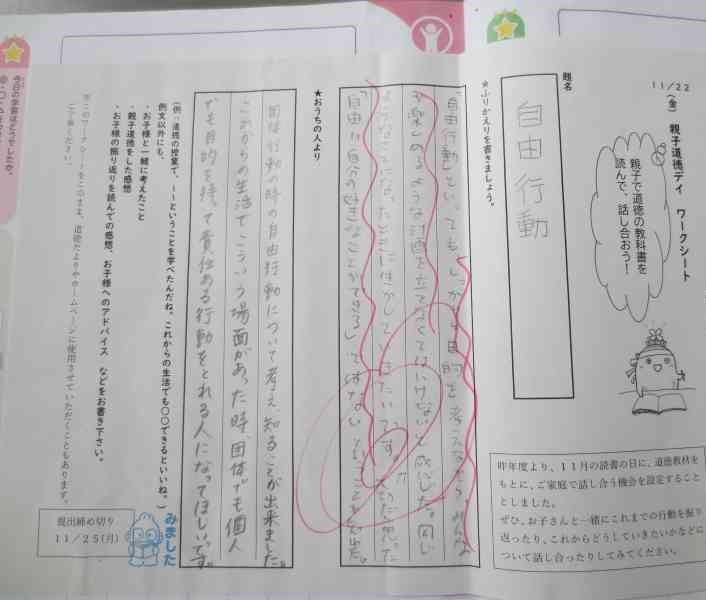 11/22
(金) 親子道徳デイ ワークシート
親子で道徳の教科書を
読んで、話し合おう!
昨年度より、11月の読書の日に、道徳教材を
もとに、ご家庭で話し合う機会を設定すること
としました。
ぜひ、お子さんと一緒にこれまでの行動を振り
返ったり、これからどうしていきたいかなどに
ついて話し合ったりしてみてください。
題名
自由行動
★ふりかえりを書きましょう。
「自由行動」といってもしっかり目的を考えながらみんな
が楽しめるような計画を立てなくてはいけないと感じした。同じ
ようなことになったときに生かしていきたいです。
「自由は自分の好きなことができる」ってはない ということも
★おうちの人より
団体行動の時の自由行動について考え、知ることが出来ました。
これからの生活でこういう場面があった時、団体でも個人
でも目的を持って責任ある行動をとれる人になってほしいです。
(例:道徳の授業で、~~ということを学べたんだね。これからの生活でも〇〇できるといいね。)
例文以外にも、
・お子様と一緒に考えたこと
・親子道徳をした感想
・お子様の振り返りを読んでの感想、お子様へのアドバイス などをお書き下さい。
※このワークシートをこのまま、道徳だよりやホームページに使用させていただくこともあります。
ご了承ください。
提出締め切り
11/25(月)
みました
今日の学習はどうでしたか。